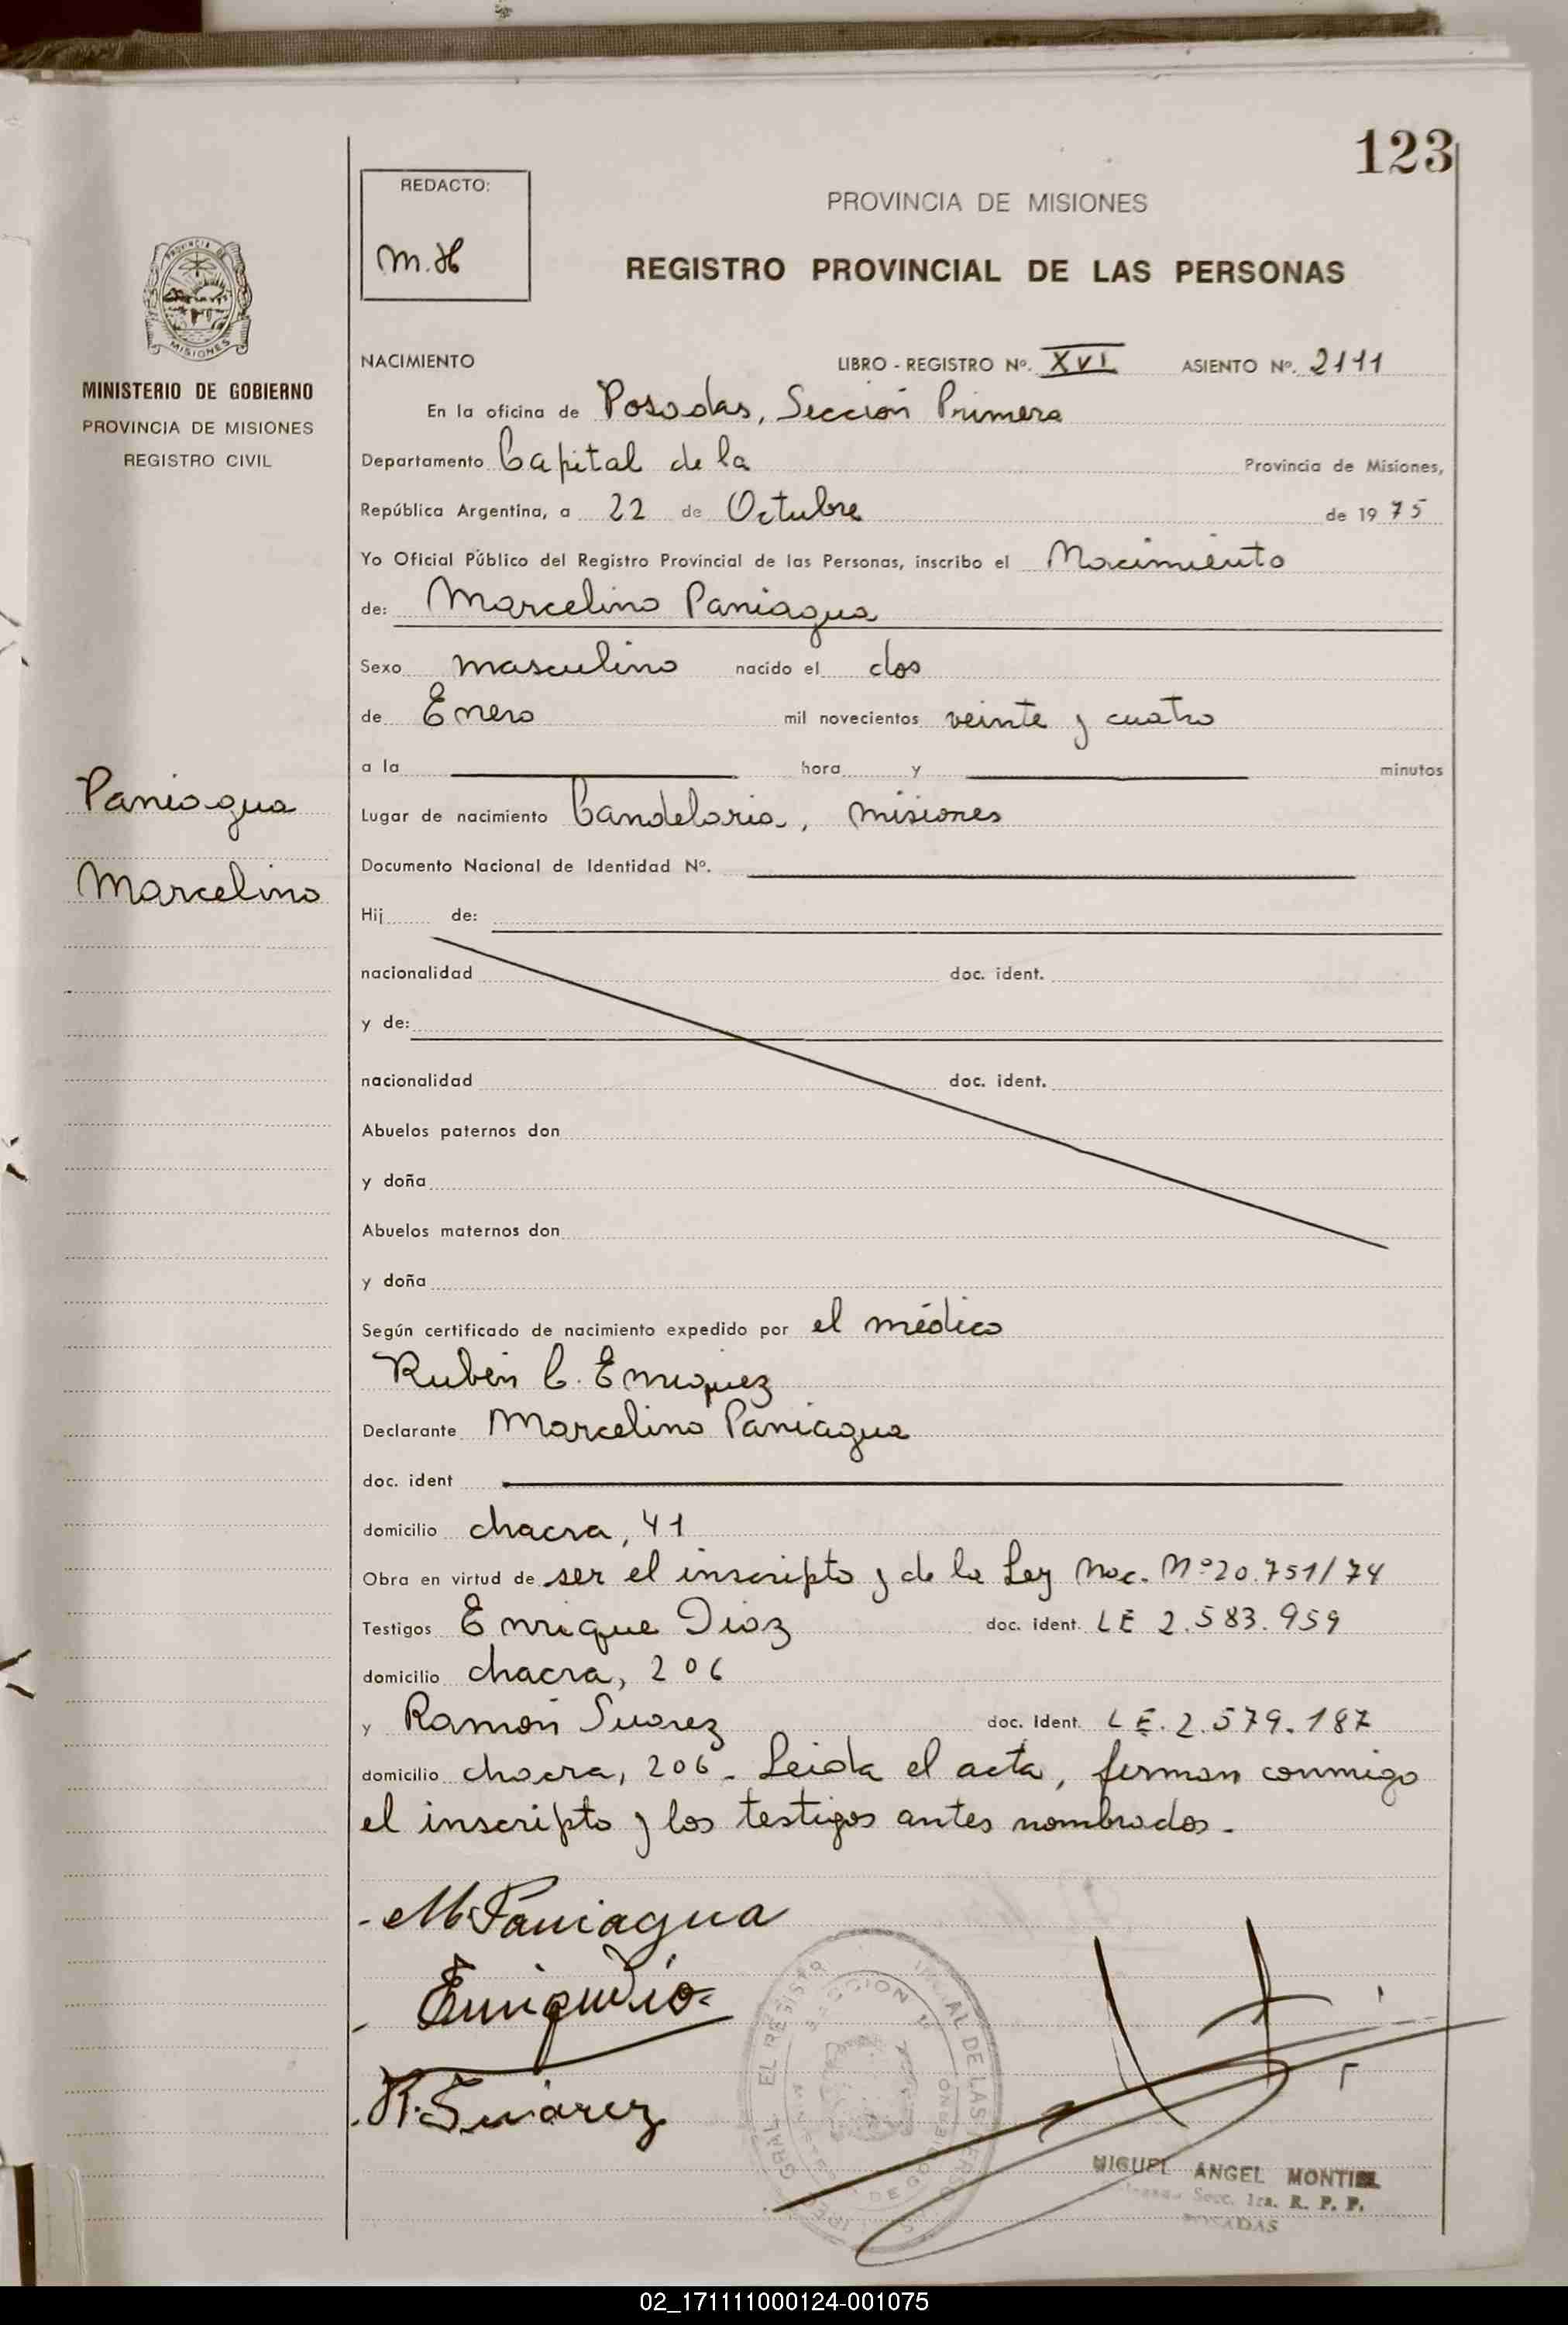 123
REDACTO:
M.H
PROVINCIA DE MISIONES
REGISTRO PROVINCIAL DE LAS PERSONAS
PROVINCIA DE
MISIONES
MINISTERIO DE GOBIERNO
PROVINCIA DE MISIONES
REGISTRO CIVIL
NACIMIENTO LIBRO - REGISTRO Nº. XVI ASIENTO Nº. 2111
En la oficina de Posadas, Sección Primera
Departamento Capital de la Provincia de Misiones,
República Argentina, a 22 de Octubre de 19 75
Yo Oficial Público del Registro Provincial de las Personas, inscribo el Nacimiento
de: Marcelino Paniagua
Sexo masculino nacido el dos
de Enero mil novecientos veinte y cuatro
a la hora y minutos
Paniagua
Marcelino
Lugar de nacimiento Candelaria, Misiones
Documento Nacional de Identidad Nº.
Hij de:
nacionalidad doc. ident.
y de:
nacionalidad doc. ident.
Abuelos paternos don
y doña
Abuelos maternos don
y doña
Según certificado de nacimiento expedido por el médico
Rubén C. Enriquez
Declarante Marcelino Paniagua
doc. ident
domicilio chacra, 41
Obra en virtud de ser el inscripto y de la Ley Nac. Nº 20.751/74
Testigos Enrique Diaz doc. ident. LE 2.583.959
domicilio chacra, 206
y Ramón Suarez doc. Ident. LE. 2.579.187
domicilio chacra, 206 - Leida el acta, firman conmigo
el inscripto y los testigos antes nombrados.-
M Paniagua
R. Suárez
MIGUEL ANGEL MONTIEL
Secc. 1ra. R. P. P.
POSADAS
02_171111000124-001075